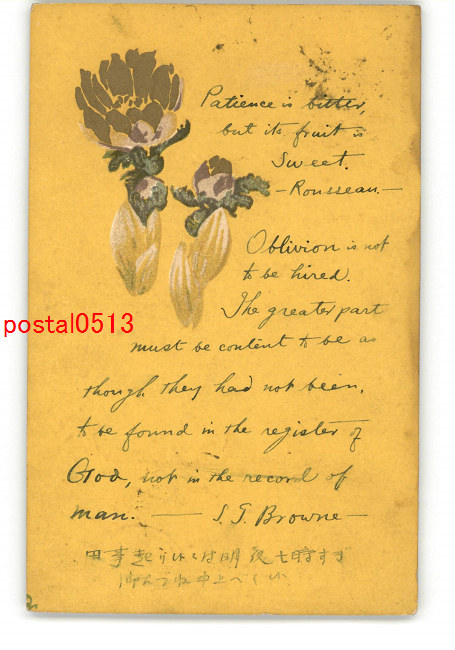 Patience is bitter,
but its fruit is
Sweet.
- Rousseau. -
Oblivion is not
to be hired.
The greater part
postal0513
must be content to be as
though they had not been,
to be found in the register of
God, not in the record of
man. — S. T. Browne —
明夜七時すぎ